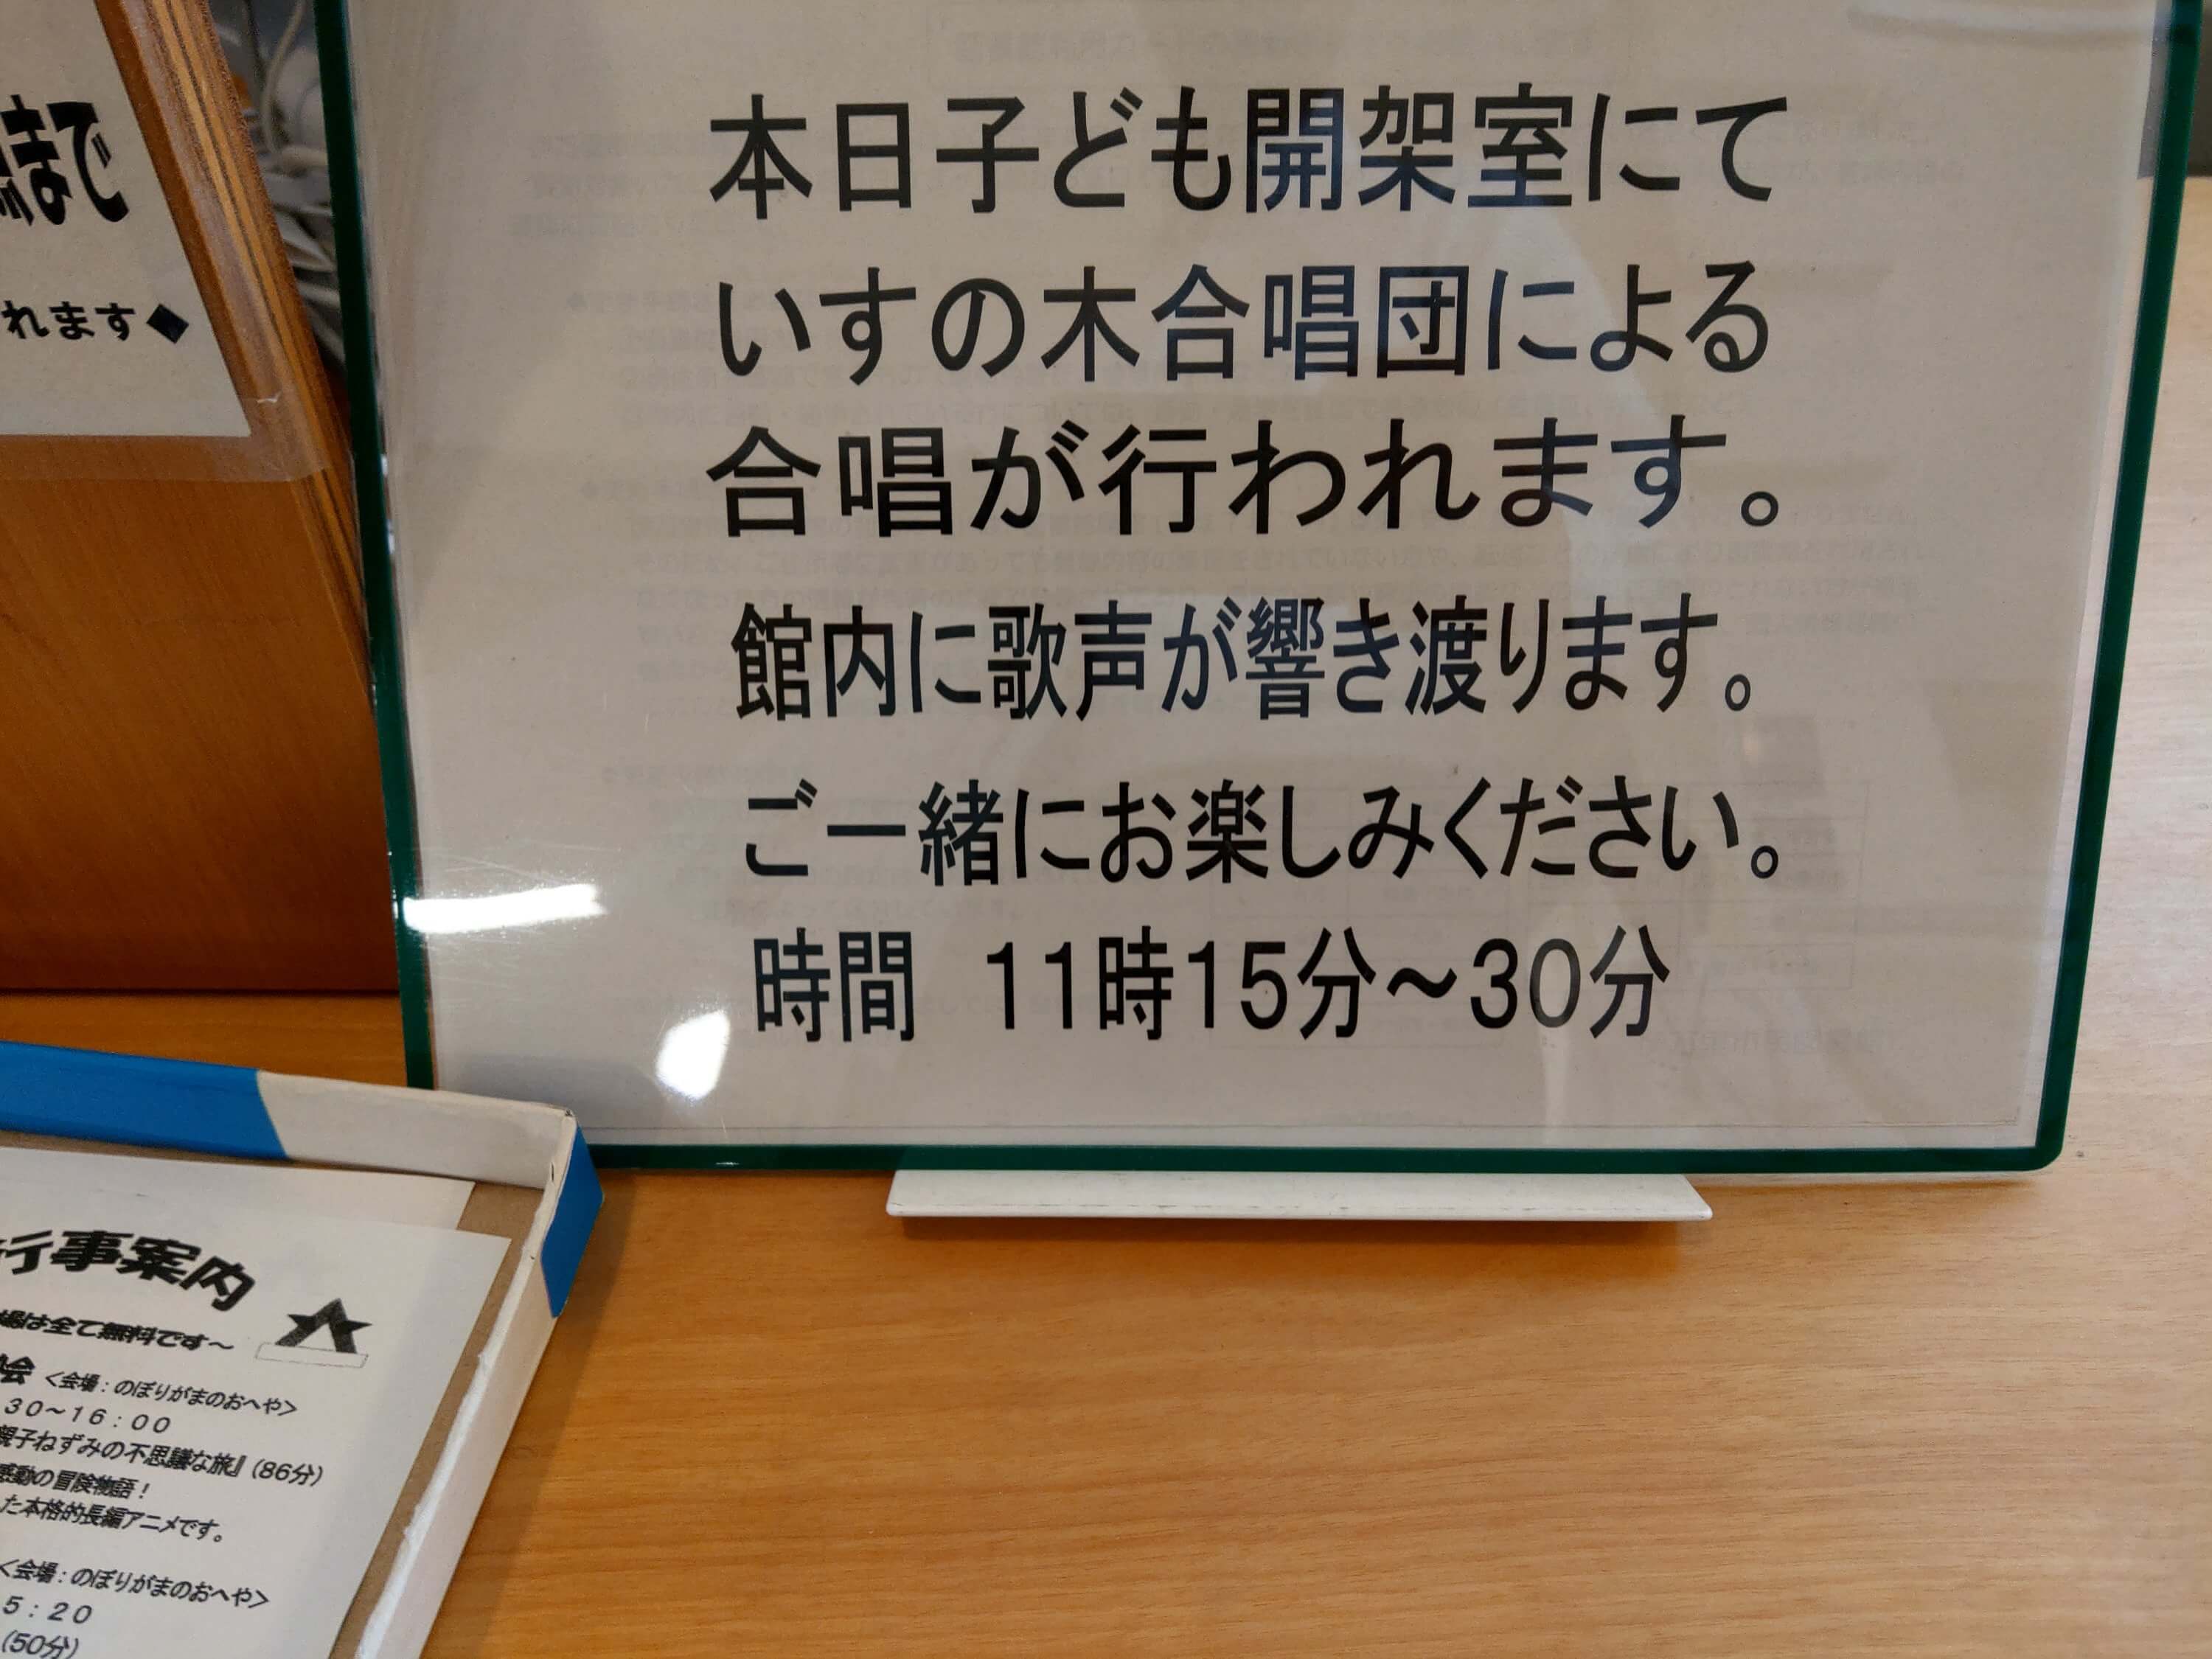 まで
れます◆
本日子ども開架室にて
いすの木合唱団による
合唱が行われます。
館内に歌声が響き渡ります。
ご一緒にお楽しみください。
時間 11時15分～30分
行事案内
場は全て無料です～
会 <会場：のぼりがまのおへや>
30～16：00
親子ねずみの不思議な旅』(86分)
感動の冒険物語！
た本格的長編アニメです。
<会場：のぼりがまのおへや>
5：20
(50分)